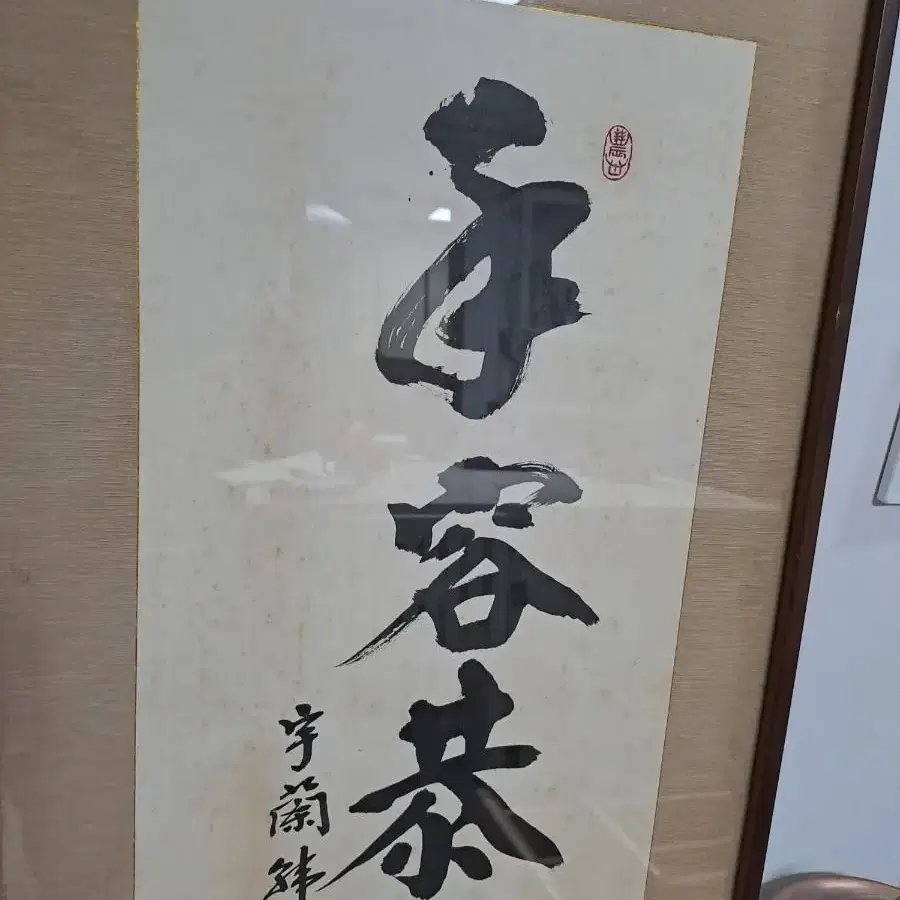 手容恭
宇蘭